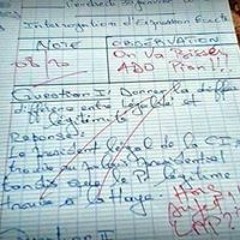 Vendredi 30 janvier
Interrogation d'Expression Ecrite
NOTE
OBSERVATION
On va Laisser
ADO Pian!!
Question I: Donner la
différence entre légalité et
légitimité
Réponse:
Le président légal de la CI se
trouve au palais présidentiel
tandis que le Pt légitime
trouve à la Haye.
Hors
Sujet!
Question II